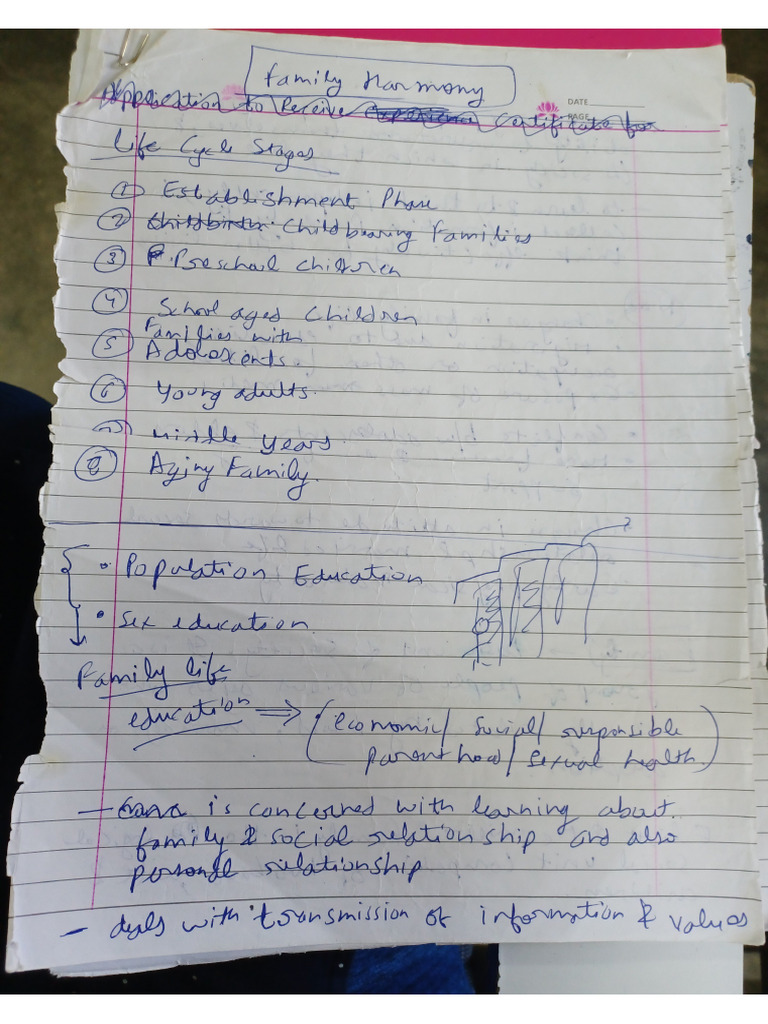 Family Harmony
DATE
PAGE
Application to Receive Experience Certificate for
Life Cycle Stages
① Establishment Phase
② Childbirth Childbearing Families
③ P Preschool Children
④ School aged Children
⑤ Families with
Adolescents.
⑥ Young adults.
⑦ Middle Years.
⑧ Aging Family.
• Population Education
• Sex education
Family life
education ⇒ (economic/ Social/ responsible
parenthood/ Sexual health.)
— is concerned with learning about
family & social relationship and also
personal relationship
— deals with transmission of information & values